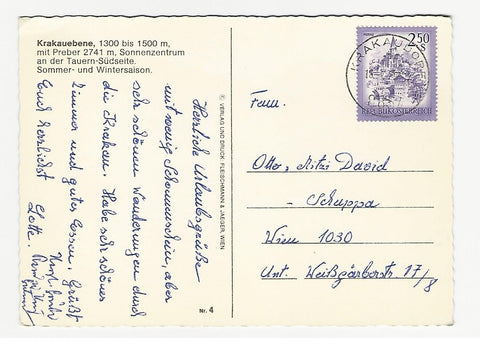 Krakauebene, 1300 bis 1500 m,
mit Preber 2741 m, Sonnenzentrum
an der Tauern-Südseite.
Sommer- und Wintersaison.
Herrliche Urlaubsgrüße
mit wenig Sonnenschein, aber
sehr schönen Wanderungen durch
die Krakau. Habe sehr schönes
Zimmer und gutes Essen. Grüßt
Euch herzlichst Lotte.
© VERLAG UND DRUCK: FLEISCHMANN & JAEGER, WIEN
Nr. 4
2.50
S
REPUBLIK ÖSTERREICH
Fam.
Otto, Mitzi David
- Schuppa
Wien 1030
Unt. Weißgärberstr. 17/8